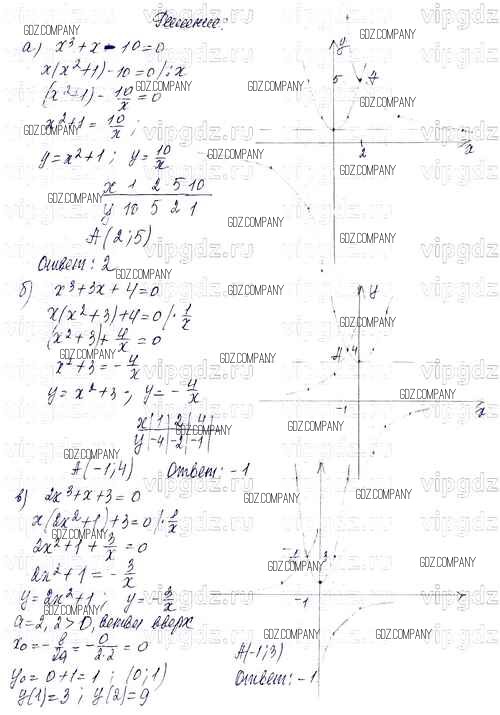 Решение:
а) x³ + x - 10 = 0
x(x²+1) - 10 = 0 /: x
(x²+1) - 10/x = 0
x²+1 = 10/x ;
y = x²+1 ; y = 10/x
x 1 2 5 10
y 10 5 2 1
A(2;5)
Ответ: 2
б) x³ + 3x + 4 = 0
x(x²+3) + 4 = 0 / · 1/x
(x²+3) + 4/x = 0
x²+3 = - 4/x
y = x²+3 ; y = - 4/x
x | 1 | 2 | 4 |
y | -4 | -2 | -1 |
A(-1;4) Ответ: -1
в) 2x³ + x + 3 = 0
x(2x²+1) + 3 = 0 / · 1/x
2x²+1 + 3/x = 0
2x²+1 = - 3/x
y = 2x²+1 ; y = - 3/x
a = 2, 2 > 0, ветви вверх
x₀ = - b/2a = - 0/2·2 = 0
y₀ = 0+1 = 1 ; (0;1)
y(1) = 3 ; y(2) = 9
y
5
A
2
x
y
A
4
-1
x
-1
3
-1
A(-1;3)
Ответ: -1
GDZ.COMPANY
vipgdz.ru